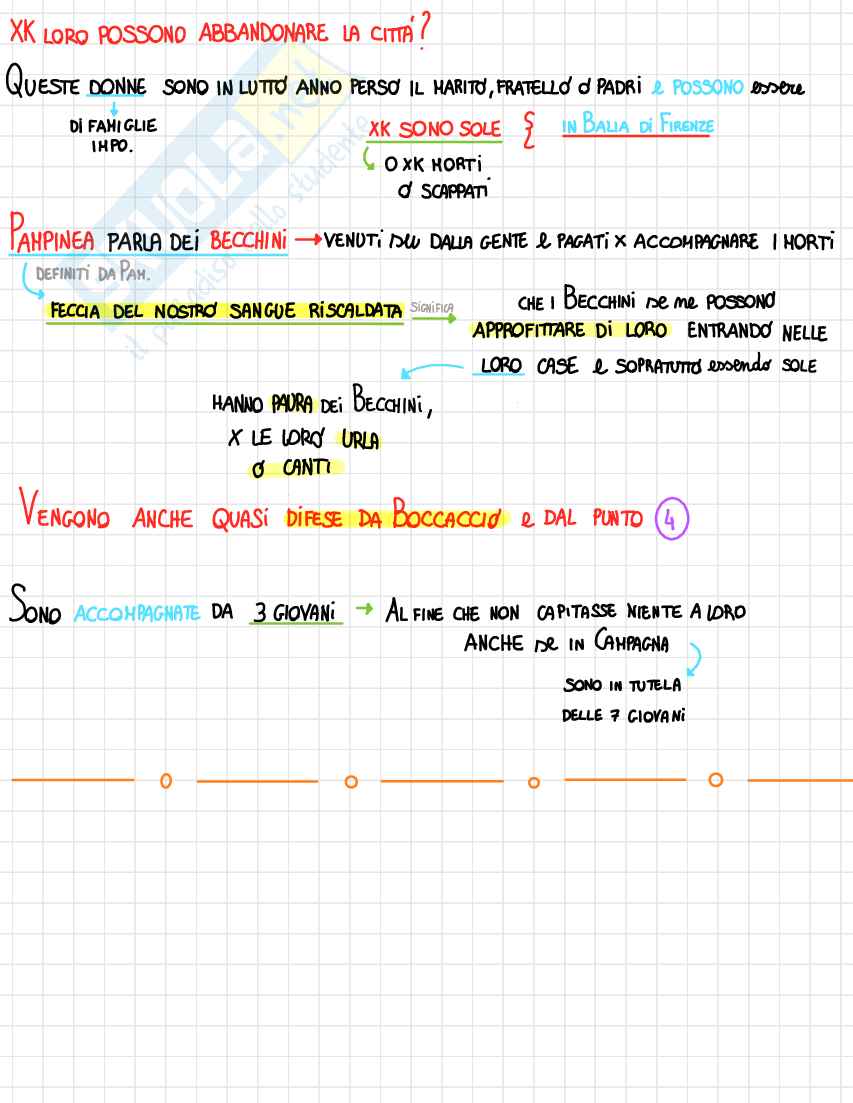 XK LORO POSSONO ABBANDONARE LA CITTÀ?
QUESTE DONNE SONO IN LUTTO ANNO PERSO IL MARITO, FRATELLO O PADRI e POSSONO essere
Di FAMIGLIE
IMPO.
XK SONO SOLE { IN BALIA di FIRENZE
O XK MORTI
O SCAPPATI
PAMPINEA PARLA DEI BECCHINI → VENUTI su DALLA GENTE e PAGATI X ACCOMPAGNARE I MORTI
DEFINITI DA PAM.
FECCIA DEL NOSTRO SANGUE RISCALDATA SIGNIFICA
CHE I BECCHINI se ne POSSONO
APPROFITTARE DI LORO ENTRANDO NELLE
LORO CASE e SOPRATUTTO essendo SOLE
HANNO PAURA DEI BECCHINI,
X LE LORO URLA
O CANTI
VENGONO ANCHE QUASI DIFESE DA BOCCACCIO e DAL PUNTO 4
SONO ACCOMPAGNATE DA 3 GIOVANI → AL FINE CHE NON CAPITASSE NIENTE A LORO
ANCHE se IN CAMPAGNA
SONO IN TUTELA
DELLE 7 GIOVANI